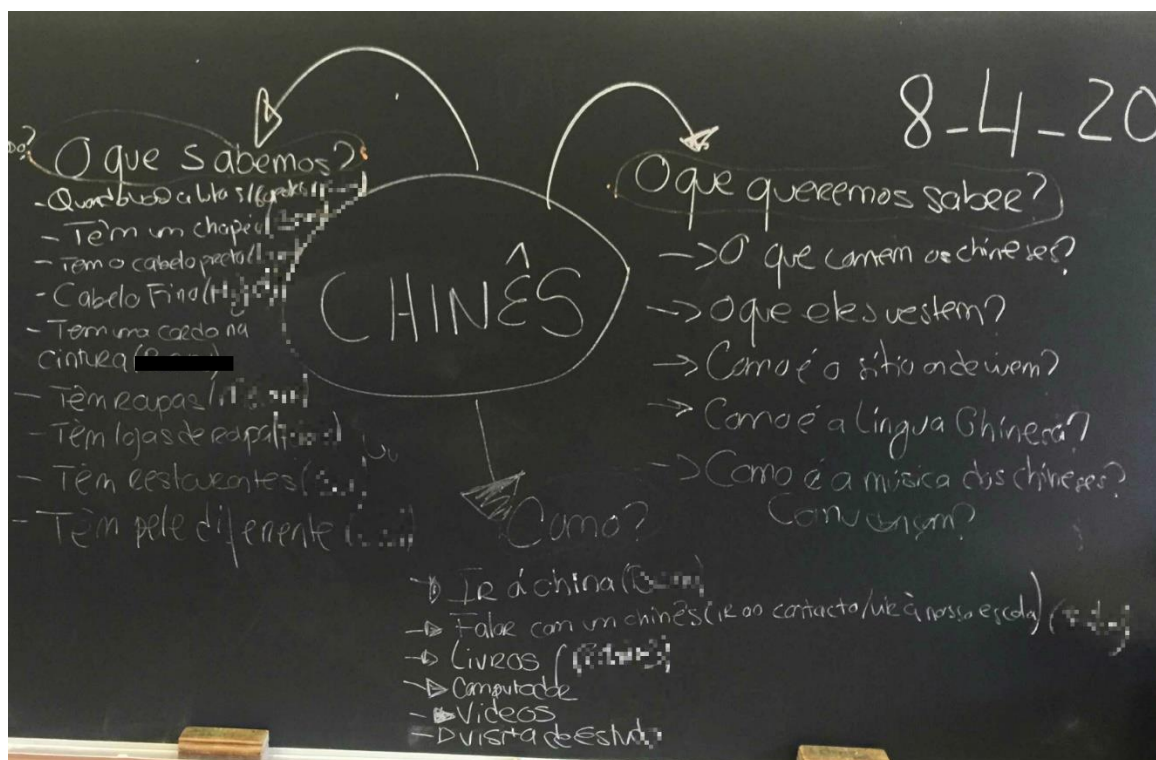 8-4-20
Do?
O que sabemos?
- Quando a luta s/
- Têm um chapéu (
- Tem o cabelo preto (
- Cabelo Fino (
- Tem uma corda na
cintura (
- Têm roupas (
- Têm lojas de roupa (
- Têm restaurantes (
- Têm pele diferente (
CHINÊS
O que queremos saber?
-> O que comem os chineses?
-> O que eles vestem?
-> Como é o sítio onde vivem?
-> Como é a língua Chinesa?
-> Como é a música dos chineses?
Como?
Ir á china (
Falar com um chinês (ir ao contacto/vir à nossa escola) (
Livros (
Computador
Videos
visita de Estudo